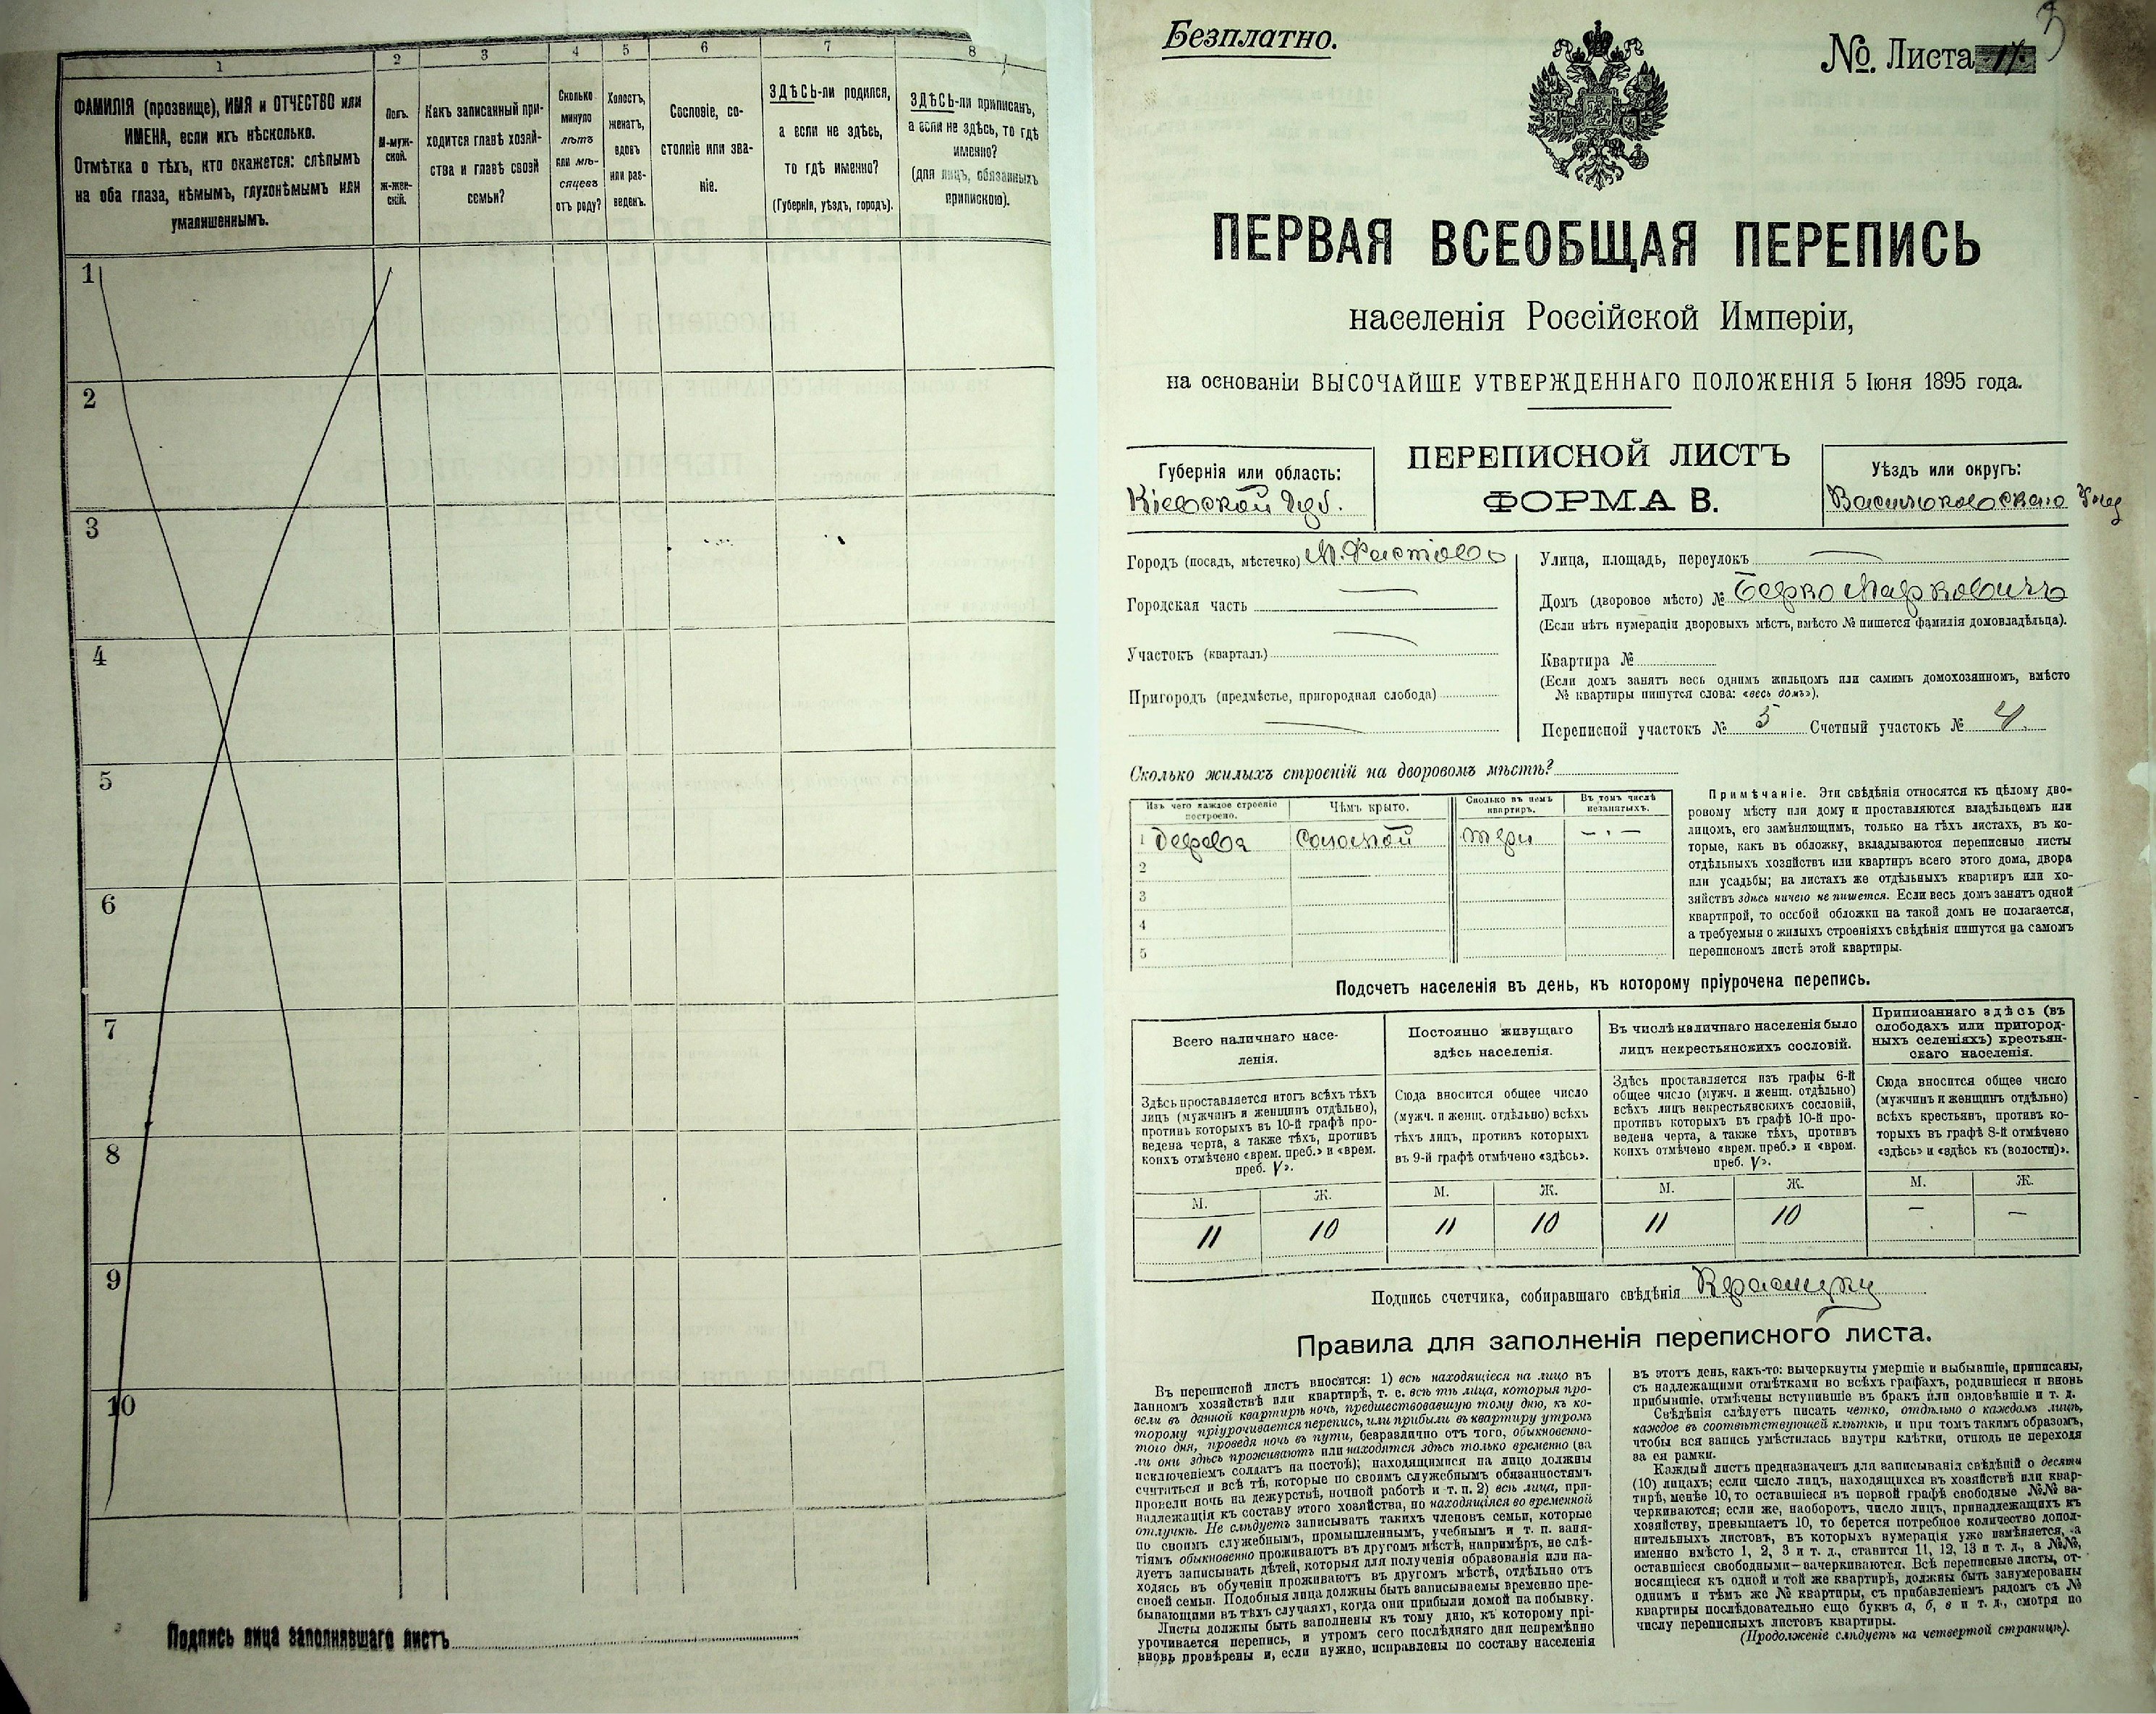 1
2
3
4
5
6
7
8
ФАМИЛІЯ (прозвище), ИМЯ и ОТЧЕСТВО или
ИМЕНА, если ихъ нѣсколько.
Отмѣтка о тѣхъ, кто окажется: слѣпымъ
на оба глаза, нѣмымъ, глухонѣмымъ или
умалишеннымъ.
Полъ.
М-муж-
ской.
Ж-жен-
скій.
Какъ записанный при-
ходится главѣ хозяй-
ства и главѣ своей
семьи?
Сколько
минуло
лѣтъ
или мѣ-
сяцевъ
отъ роду?
Холостъ,
женатъ,
вдовъ
или раз-
веденъ.
Сословіе, со-
стояніе или зва-
ніе.
ЗДѢСЬ-ли родился,
а если не здѣсь,
то гдѣ именно?
(Губернія, уѣздъ, городъ).
ЗДѢСЬ-ли приписанъ,
а если не здѣсь, то гдѣ
именно?
(для лицъ, обязанныхъ
припискою).
1
2
3
4
5
6
7
8
9
10
Подпись лица заполнявшаго листъ
Безплатно.
№ Листа
3
ПЕРВАЯ ВСЕОБЩАЯ ПЕРЕПИСЬ
населенія Россійской Имперіи,
на основаніи ВЫСОЧАЙШЕ УТВЕРЖДЕННАГО ПОЛОЖЕНІЯ 5 Іюня 1895 года.
Губернія или область:
Кіевской Губ.
ПЕРЕПИСНОЙ ЛИСТЪ
ФОРМА В.
Уѣздъ или округъ:
Васильковскаго Уѣзд
Городъ (посадъ, мѣстечко) М. Фастовъ
Городская часть
Участокъ (кварталъ)
Пригородъ (предмѣстье, пригородная слобода)
Улица, площадь, переулокъ
Домъ (дворовое мѣсто) № Берко Марковичъ
(Если нѣтъ нумераціи дворовыхъ мѣстъ, вмѣсто № пишется фамилія домовладѣльца).
Квартира №
(Если домъ занятъ весь однимъ жильцомъ или самимъ домохозяиномъ, вмѣсто
№ квартиры пишутся слова: «весь домъ»).
Переписной участокъ № 5 Счетный участокъ № 4
Сколько жилыхъ строеній на дворовомъ мѣстѣ?
Изъ чего каждое строеніе
построено.
Чѣмъ крыто.
Сколько въ немъ
квартиръ.
Въ томъ числѣ
незанятыхъ.
1 Дерева Соломой три – · –
2
3
4
5
Примѣчаніе. Эти свѣдѣнія относятся къ цѣлому дво-
ровому мѣсту или дому и проставляются владѣльцемъ или
лицомъ, его замѣняющимъ, только на тѣхъ листахъ, въ ко-
торые, какъ въ обложку, вкладываются переписные листы
отдѣльныхъ хозяйствъ или квартиръ всего этого дома, двора
или усадьбы; на листахъ же отдѣльныхъ квартиръ или хо-
зяйствъ здѣсь ничего не пишется. Если весь домъ занятъ одной
квартирой, то особой обложки на такой домъ не полагается,
а требуемыя о жилыхъ строеніяхъ свѣдѣнія пишутся на самомъ
переписномъ листѣ этой квартиры.
Подсчетъ населенія въ день, къ которому пріурочена перепись.
Всего наличнаго насе-
ленія.
Постоянно живущаго
здѣсь населенія.
Въ числѣ наличнаго населенія было
лицъ некрестьянскихъ сословій.
Приписаннаго здѣсь (въ
слободахъ или пригород-
ныхъ селеніяхъ) крестьян-
скаго населенія.
Здѣсь проставляется итогъ всѣхъ тѣхъ
лицъ (мужчинъ и женщинъ отдѣльно),
противъ которыхъ въ 10-й графѣ про-
ведена черта, а также тѣхъ, противъ
коихъ отмѣчено «врем. преб.» и «врем.
преб. V».
Сюда вносится общее число
(мужч. и женщ. отдѣльно) всѣхъ
тѣхъ лицъ, противъ которыхъ
въ 9-й графѣ отмѣчено «здѣсь».
Здѣсь проставляется изъ графы 6-й
общее число (мужч. и женщ. отдѣльно)
всѣхъ лицъ некрестьянскихъ сословій,
противъ которыхъ въ графѣ 10-й про-
ведена черта, а также тѣхъ, противъ
коихъ отмѣчено «врем. преб.» и «врем.
преб. V».
Сюда вносится общее число
(мужчинъ и женщинъ отдѣльно)
всѣхъ крестьянъ, противъ ко-
торыхъ въ графѣ 8-й отмѣчено
«здѣсь» и «здѣсь къ (волости)».
М. Ж. М. Ж. М. Ж. М. Ж.
11 10 11 10 11 10 – –
Подпись счетчика, собиравшаго свѣдѣнія
Правила для заполненія переписного листа.
Въ переписной листъ вносятся: 1) всѣ находящіеся на лицо въ
данномъ хозяйствѣ или квартирѣ, т. е. всѣ тѣ лица, которыя про-
вели въ данной квартирѣ ночь, предшествовавшую тому дню, къ ко-
торому пріурочивается перепись, или прибыли въ квартиру утромъ
того дня, проведя ночь въ пути, безразлично отъ того, обыкновенно-
ли они здѣсь проживаютъ или находятся здѣсь только временно (за
исключеніемъ солдатъ на постоѣ); находящимися на лицо должны
считаться и всѣ тѣ, которые по своимъ служебнымъ обязанностямъ
провели ночь на дежурствѣ, ночной работѣ и т. п. 2) всѣ лица, при-
надлежащія къ составу этого хозяйства, но находящіяся во временной
отлучкѣ. Не слѣдуетъ записывать такихъ членовъ семьи, которые
по своимъ служебнымъ, промышленнымъ, учебнымъ и т. п. заня-
тіямъ обыкновенно проживаютъ въ другомъ мѣстѣ, напримѣръ, не слѣ-
дуетъ записывать дѣтей, которыя для полученія образованія или на-
ходясь въ обученіи проживаютъ въ другомъ мѣстѣ, отдѣльно отъ
своей семьи. Подобныя лица должны быть записываемы временно пре-
бывающими въ тѣхъ случаяхъ, когда они прибыли домой на побывку.
Листы должны быть заполнены къ тому дню, къ которому прі-
урочивается перепись, и утромъ сего послѣдняго дня непремѣнно
вновь провѣрены и, если нужно, исправлены по составу населенія
въ этотъ день, какъ-то: вычеркнуты умершіе и выбывшіе, приписаны,
съ надлежащими отмѣтками во всѣхъ графахъ, родившіеся и вновь
прибывшіе, отмѣчены вступившіе въ бракъ или овдовѣвшіе и т. д.
Свѣдѣнія слѣдуетъ писать четко, отдѣльно о каждомъ лицѣ,
каждое въ соотвѣтствующей клѣткѣ, и при томъ такимъ образомъ,
чтобы вся запись умѣстилась внутри клѣтки, отнюдь не переходя
за ея рамки.
Каждый листъ предназначенъ для записыванія свѣдѣній о десяти
(10) лицахъ; если число лицъ, находящихся въ хозяйствѣ или квар-
тирѣ, менѣе 10, то оставшіеся въ первой графѣ свободные №№ за-
черкиваются; если же, наоборотъ, число лицъ, принадлежащихъ къ
хозяйству, превышаетъ 10, то берется потребное количество допол-
нительныхъ листовъ, въ которыхъ нумерація уже измѣняется, а
именно вмѣсто 1, 2, 3 и т. д., ставится 11, 12, 13 и т. д., а №№,
оставшіеся свободными—вачеркиваются. Всѣ переписные листы, от-
носящіеся къ одной и той же квартирѣ, должны быть занумерованы
однимъ и тѣмъ же № квартиры, съ прибавленіемъ рядомъ съ №
квартиры послѣдовательно еще буквъ а, б, в и т. д., смотря по
числу переписныхъ листовъ квартиры.
(Продолженіе слѣдуетъ на четвертой страницѣ).